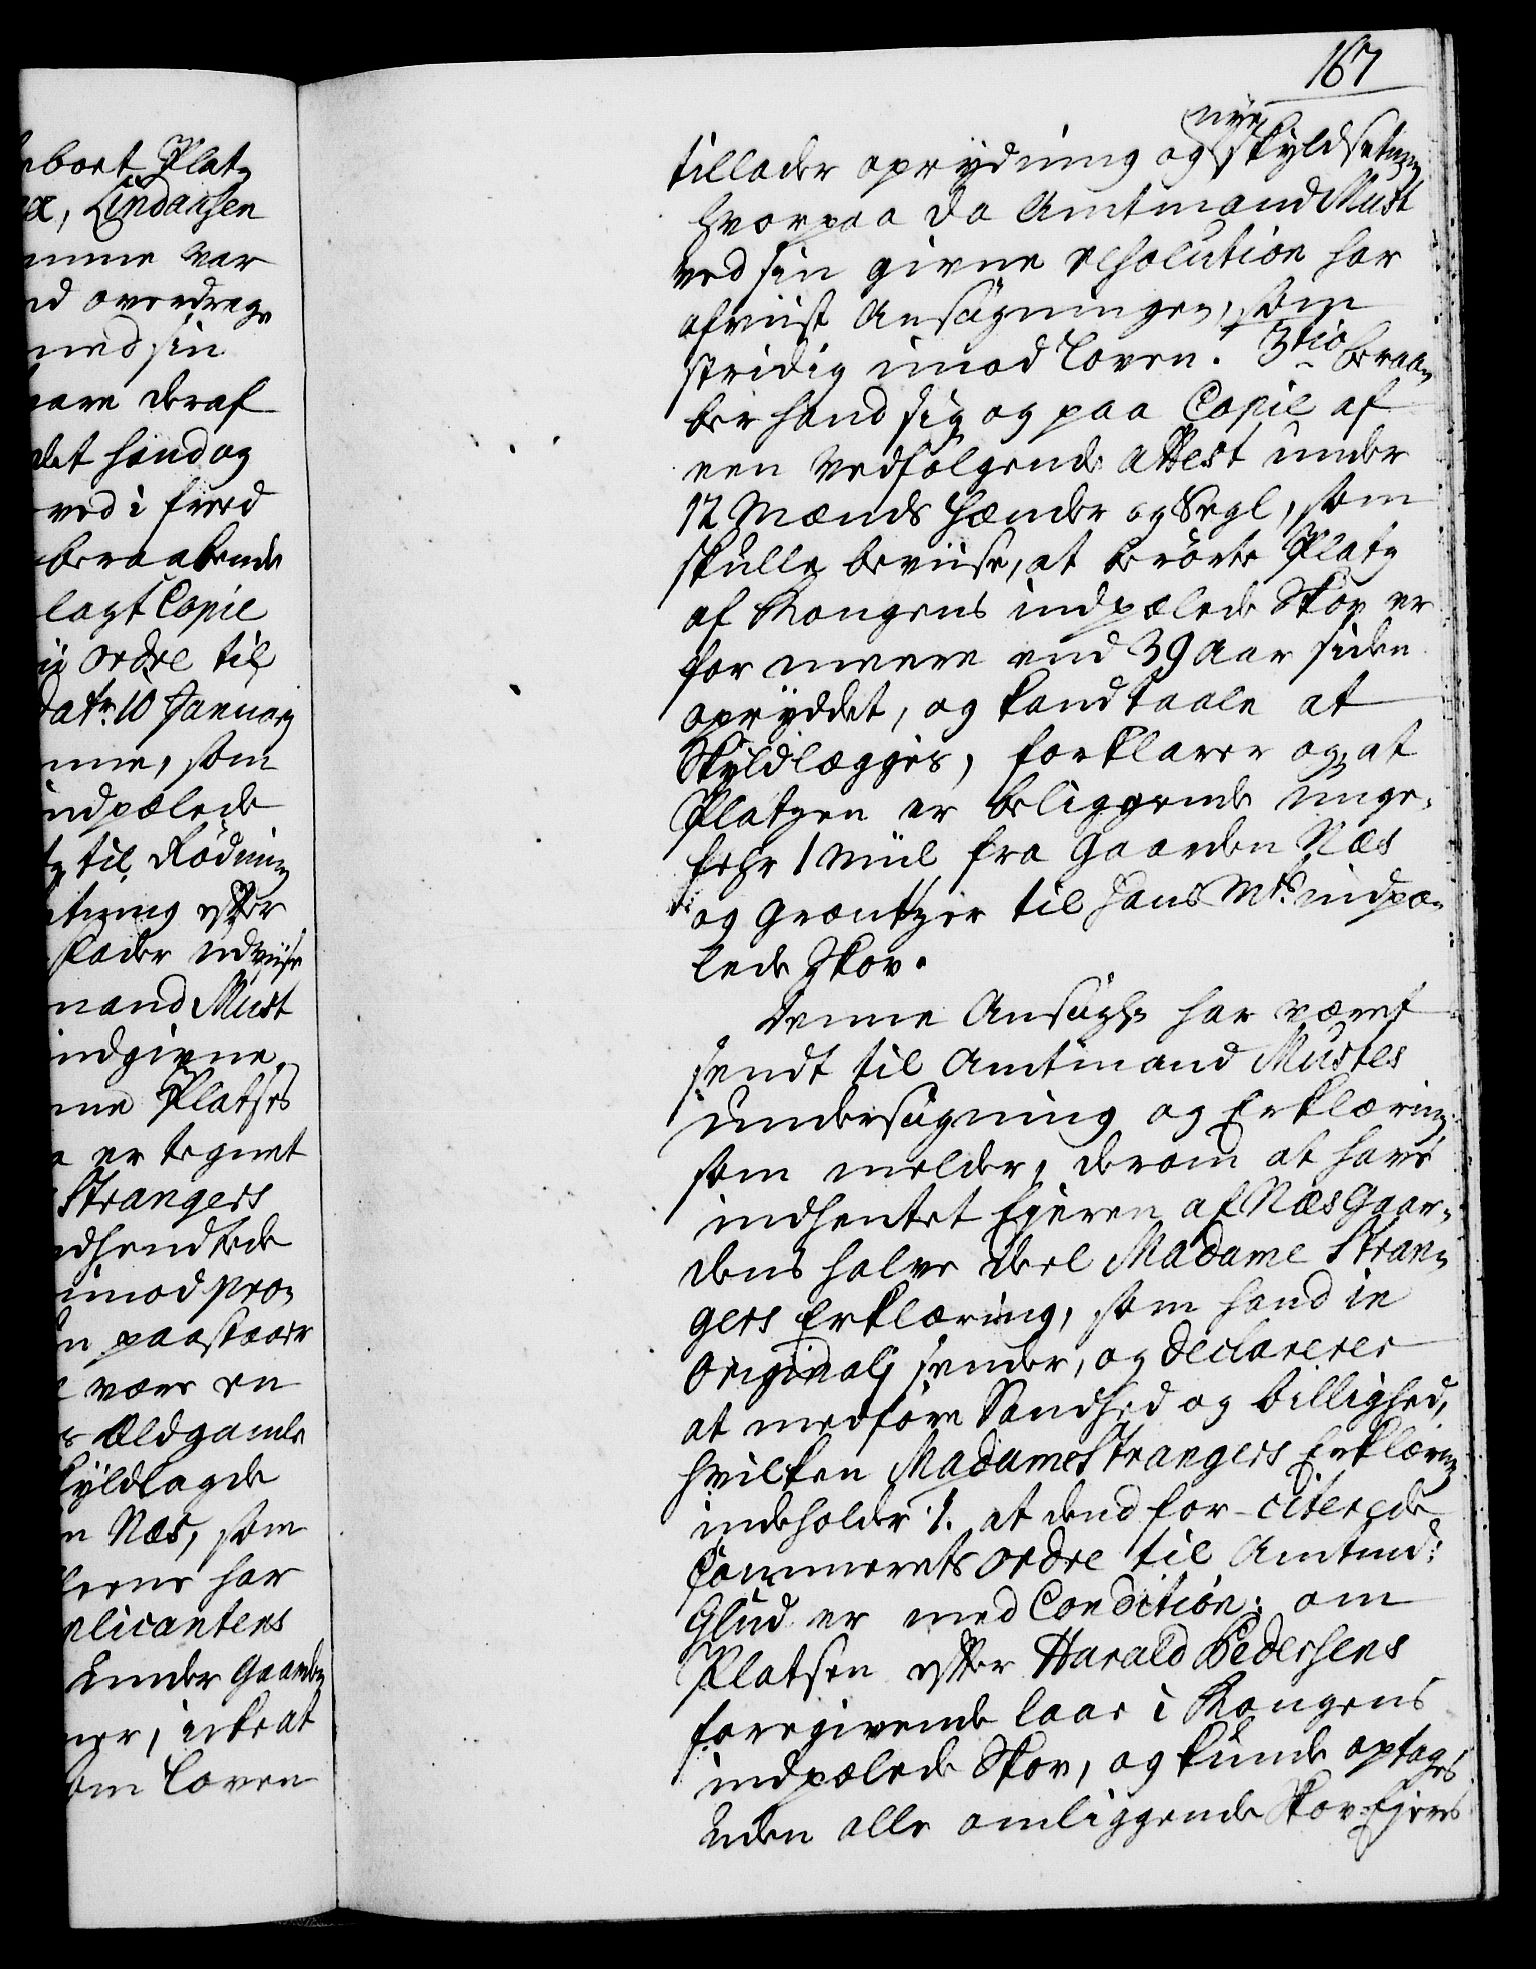 167
nye
tillader oprydning og Skyldsetning
hvorpaa da Amtmand Must
ved sin givne resolution har
afviist Ansøgningen, som
stridig imod Loven. 3tio beraa-
ber hand sig og paa Copie af
een vedfølgende Attest under
12 Mænds Hænder og Segl, som
skulle beviise, at berørte Platz
af Kongens indpælede Skov er
for meere end 39 Aar siden
opryddet, og kand taale at
Skyldlægges, forklarer og, at
Platzen er beliggende unge-
fehr 1 Miil fra Gaarden Næs
og græntzer til Hans Mts. indpæ-
lede Skov.
Denne Ansøgn har været
sendt til Amtmand Mustes
undersøgning og Erklæring
som melder, derom at have
indhentet Ejeren af Næs Gaar-
dens halve deel Madame Stran-
gers Erklæring, som hand in
Originali sender, og declarerer
at medføre Sandhed og billighed,
hvilken Madame Strangers Erklæring
indeholder 1. at dend for-citerede
Cammerets ordre til Amtmd:
Glud er med Condition: om
Platsen efter Harald Pedersens
foregivende laae i Kongens
indpælede Skov, og kunde optages
uden alle omliggende Skov-Ejeres
boet Platz
Lindansen
mme var
overdrage
med sin
deraf
det hand og
ved i fred
beraabende
lagt Copie
ordre til
datr. 10 January
som
indpælede
til Rødning
efter
udviise
mand Must
indgivne
Platses
er tegnet
Strangers
imod pro-
paastaaer
være en
Ældgamle
Skyldlagde
Næs, som
har
plicantens
under Gaarden
icke at
om Loven